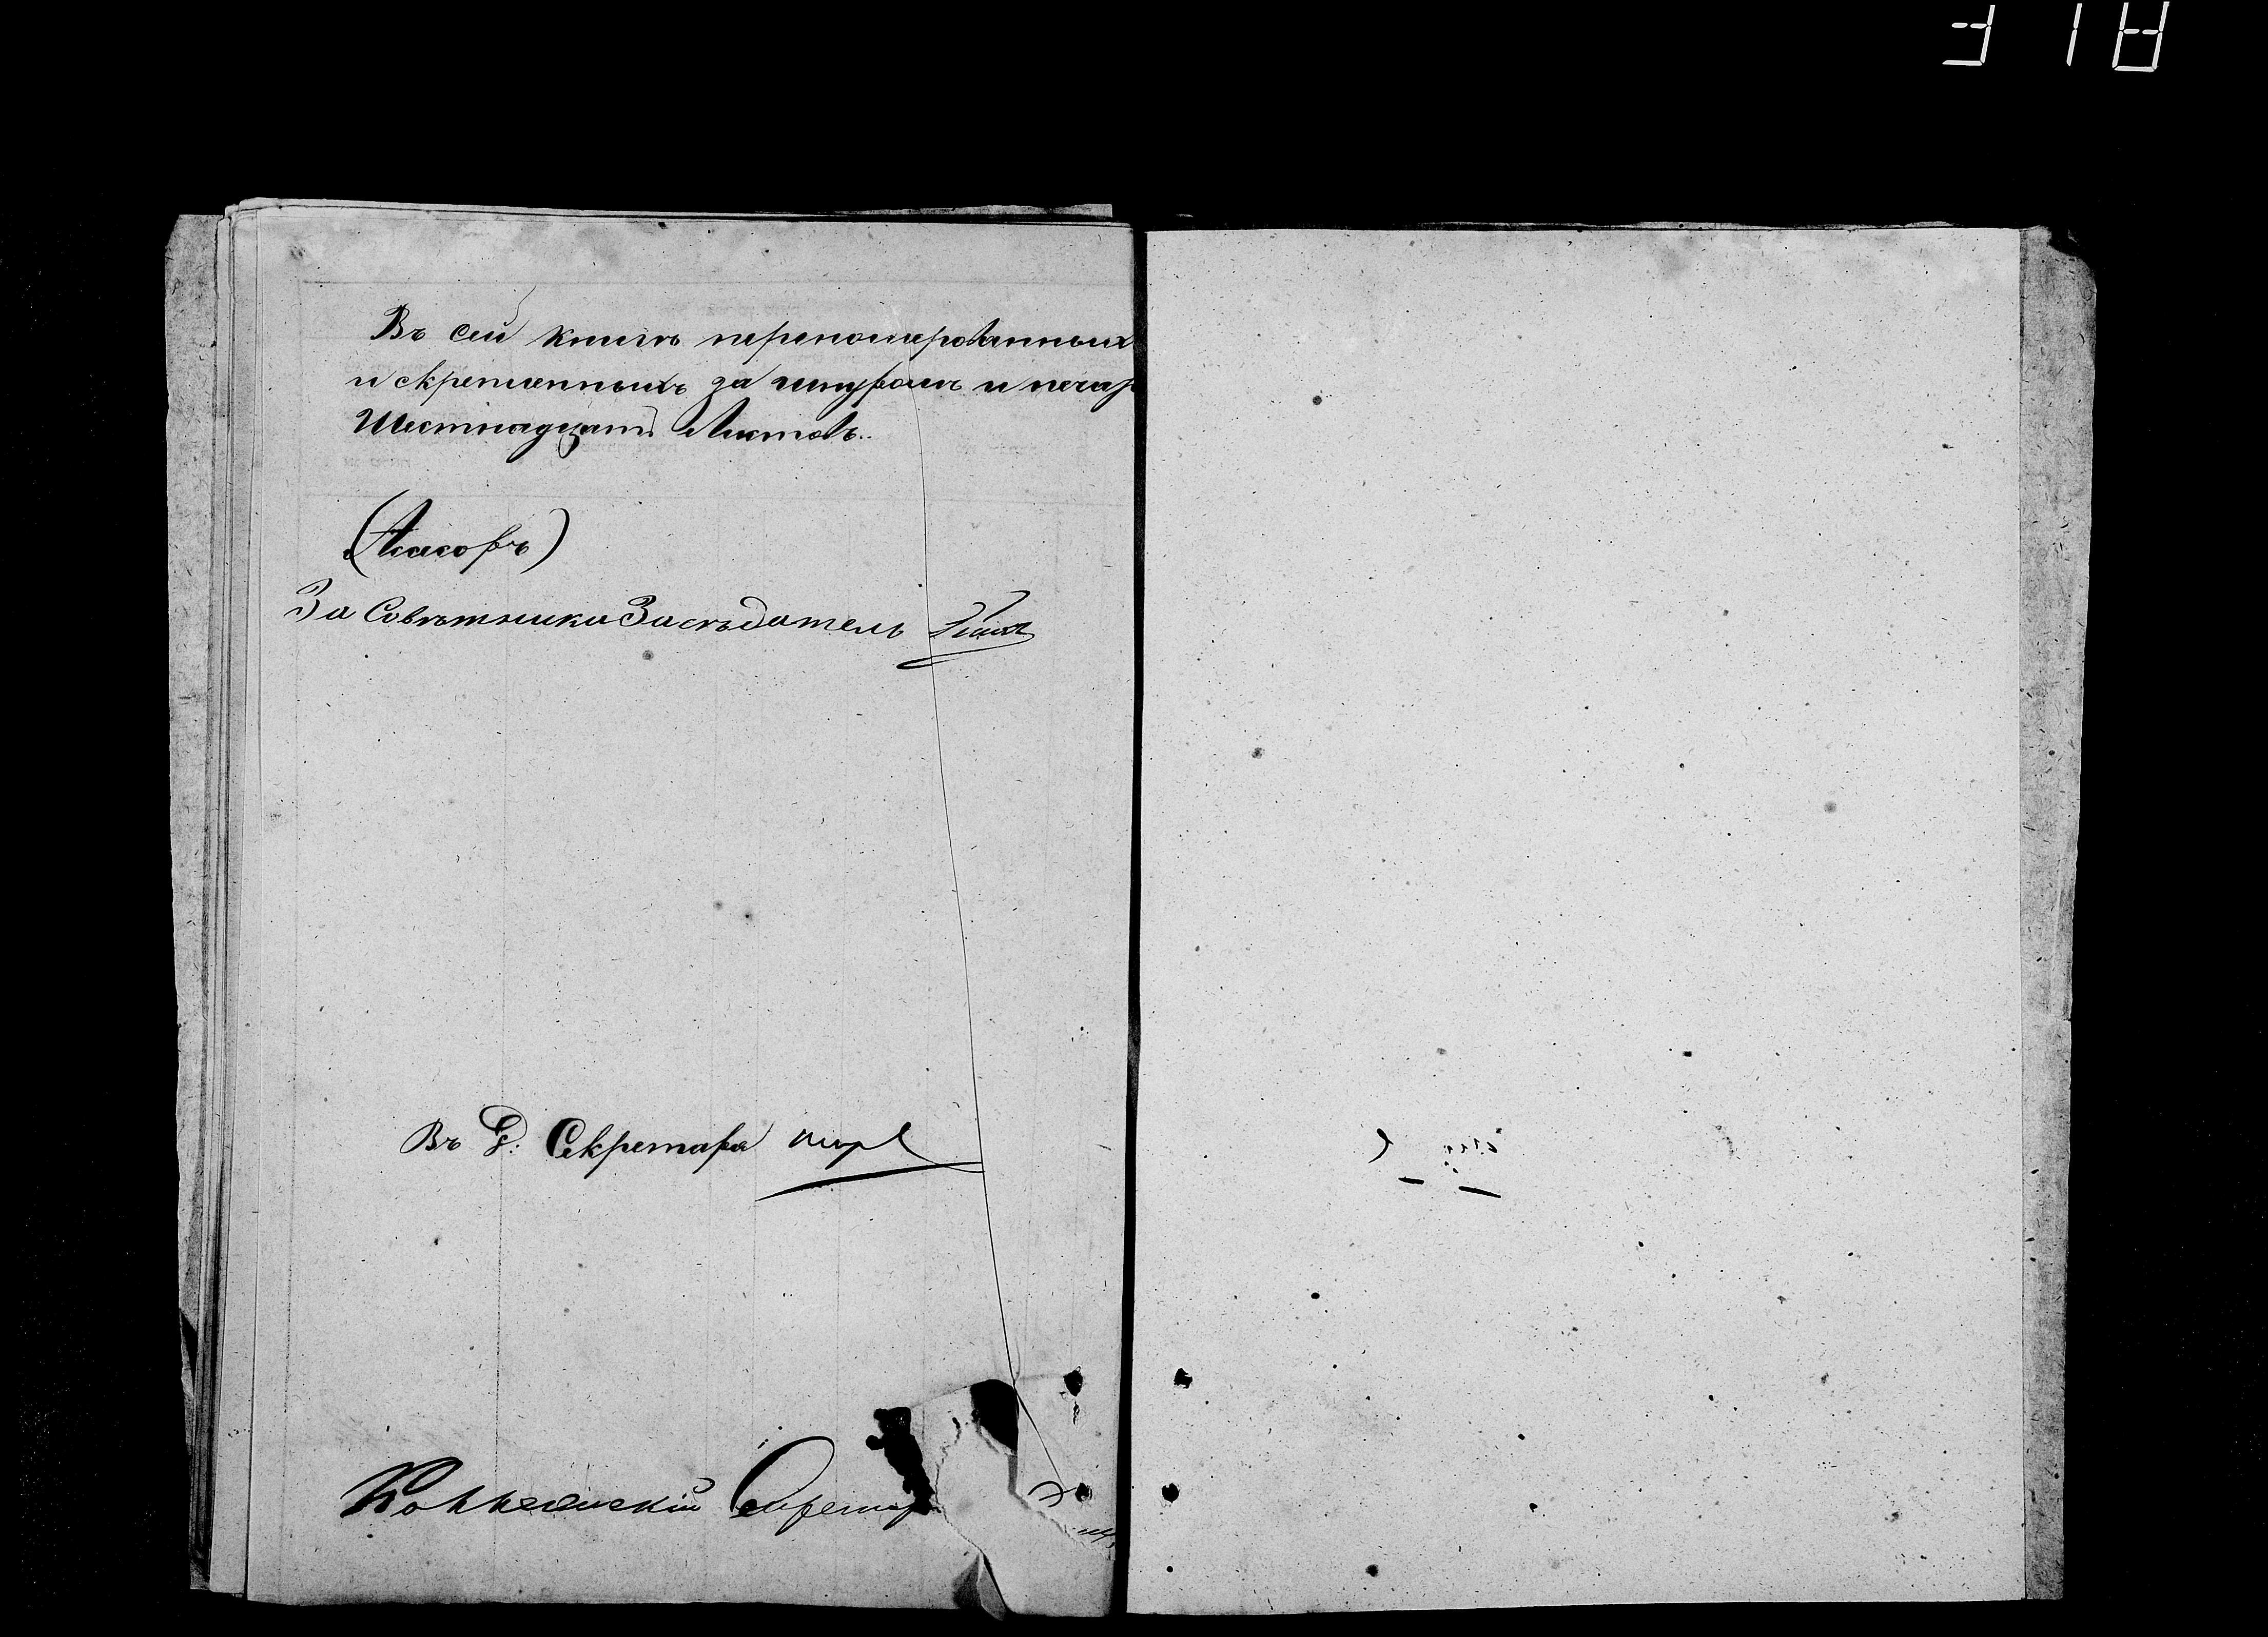 Въ сей книгѣ переномерованныхъ
и скрепленныхъ за шнуромъ и печат
Шестнадцать Листовъ.
За Совѣтника Засѣдатель
Въ Д: Секретаря
Коллежскій Секретар